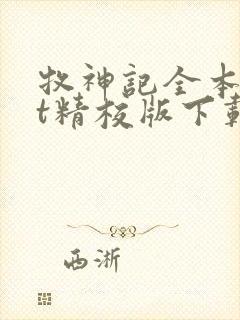 牧神記全本
t精校版下載
西淅